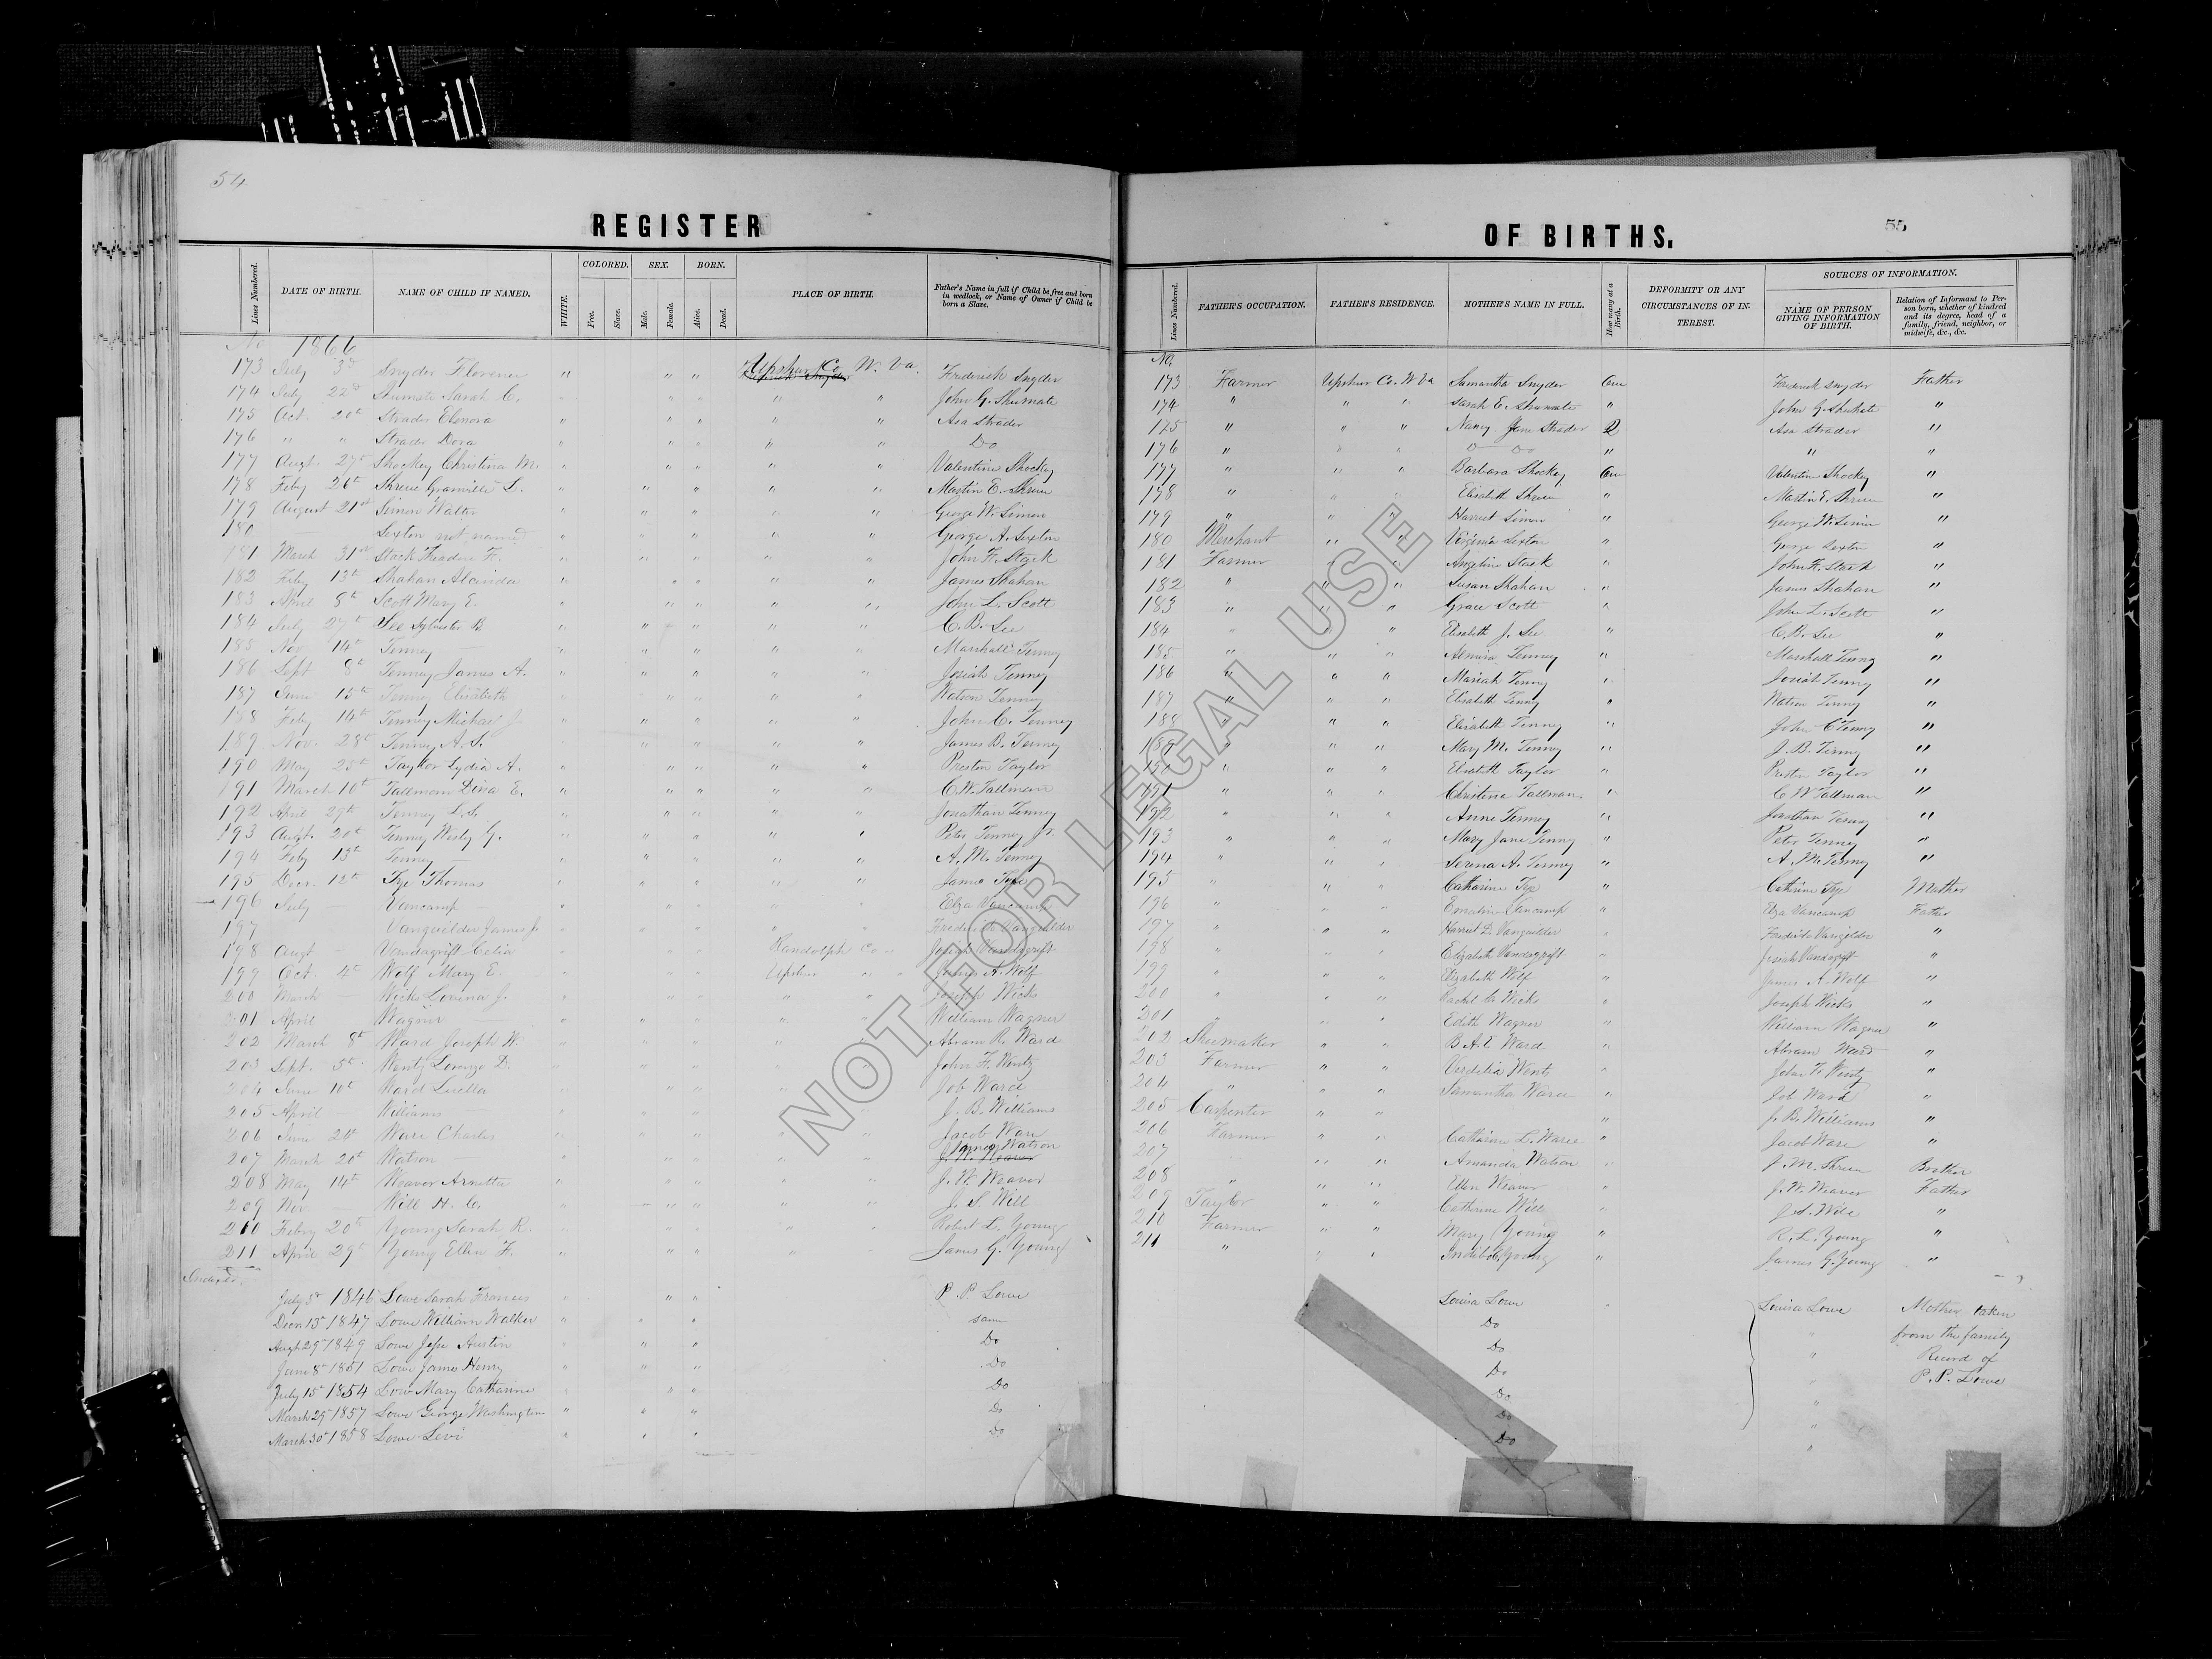 54
REGISTER
Lines Numbered.
DATE OF BIRTH.
NAME OF CHILD IF NAMED.
WHITE.
COLORED.
Free.
Slave.
SEX.
Male.
Female.
BORN.
Alive.
Dead.
PLACE OF BIRTH.
Father's Name in full if Child be free and born
in wedlock, or Name of Owner if Child be
born a Slave.
No 1866
173 July 3d Snyder Florence " " " Upshur Co W. Va. Frederick Snyder
174 July 22d Shumate Sarah C. " " " " " John G. Shumate
175 Oct. 20th Strader Elenora " " " " " Asa Strader
176 " " Strader Dora " " " " " Do
177 Augt. 27th Shockey Christina M. " " " " " Valentine Shockey
178 Feby 26th Shreve Granville L. " " " " " Martin E. Shreve
179 August 21st Simon Walter " " " " " George W. Simon
180 — Sexton not named " " " " " George A. Sexton
181 March 31st Stack Theodore F. " " " " " John F. Stack
182 Feby 13th Shahan Alcinda " " " " " James Shahan
183 April 8th Scott Mary E. " " " " " John L. Scott
184 July 27th See Sylvester B " " " " " C. B. See
185 Nov 14th Tenney — " " " " " Marshall Tenney
186 Sept 8th Tenney James A. " " " " " Josiah Tenney
187 June 15th Tenney Elisabeth " " " " " Watson Tenney
188 Feby 14th Tenney Michael J " " " " " John C. Tenney
189 Nov. 28th Tenney A. S. " " " " James B. Tenney
190 May 25th Taylor Lydia A. " " " " " Preston Taylor
191 March 10th Tallmam E. " " " " " C. W. Tallman
192 April 29th Tenney L. S. " " " " " Jonathan Tenney
193 Augt. 20th Tenney Wesly G. " " " " " Peter Tenney Jr.
194 Feby 13th Tenney — " " " " " A. M. Tenney
195 Decr. 12th Tye Thomas " " " " " James Tye
196 July — Vancamp — " " " " " Elza Vancamp
197 Vanguilder James J. " " " " " Frederick Vanguilder
198 Augt — Vandagrift Celia " " " Randolph Co Josiah Vandagrift
199 Oct. 4th Wolf Mary E. " " " Upshur " " James A. Wolf
200 March — Wicks Lovina J. " " " " " Joseph Wicks
201 April Wagner — " " " " " William Wagner
202 March 8th Ward Joseph W. " " " " " Abram R. Ward
203 Sept. 5th Wentz Lorenzo D. " " " " " John F. Wentz
204 June 10th Ward Luella " " " " " Job Ward
205 April — Williams — " " " " " J. B. Williams
206 June 20th Ware Charles " " " " " Jacob Ware
207 March 20th Watson — " " " " " James Watson
J. W. Weaver
208 May 14th Weaver Arnettie " " " " " J. W. Weaver
209 Nov. — Will H. C. " " " " " J. S. Will
210 Febry 20th Young Sarah R. " " " " " Robert L. Young
211 April 29th Young Ellen F. " " " " " James G. Young
July 3d 1846 Lowe Sarah Frances " " " P. P. Lowe
Decn 13th 1847 Lowe William Walker " " " same
Augt 29th 1849 Lowe Jesse Austin " " " Do
June 8th 1851 Lowe James Henry " " " Do
July 15th 1854 Lowe Mary Catharine " " " Do
March 29th 1857 Lowe George Washington " " " Do
March 30th 1858 Lowe Levi " " " Do
OF BIRTHS.
55
Lines Numbered.
FATHER'S OCCUPATION.
FATHER'S RESIDENCE.
MOTHER'S NAME IN FULL.
How many at a Birth.
DEFORMITY OR ANY
CIRCUMSTANCES OF IN-
TEREST.
SOURCES OF INFORMATION.
NAME OF PERSON
GIVING INFORMATION
OF BIRTH.
Relation of Informant to Per-
son born, whether of kindred
and its degree, head of a
family, friend, neighbor, or
midwife, &c., &c.
No.
173 Farmer Upshur Co. W Va Samantha Snyder One Frederick Snyder Father
174 " " " Sarah E. Shumate " John G. Shumate "
175 " " " Nancy Jane Strader 2 Asa Strader "
176 " " " Do " " "
177 " " " Barbara Shockey One Valentine Shockey "
178 " " " Elisabeth Shreve " Martin E. Shreve "
179 " " " Harriet Simon " George W. Simon "
180 Merchant " " Virginia Sexton " George Sexton "
181 Farmer " " Angeline Stack " John F. Stack "
182 " " " Susan Shahan " James Shahan "
183 " " " Grace Scott " John L. Scott "
184 " " " Elisabeth J. See " C. B. See "
185 " " " Almira Tenney " Marshall Tenney "
186 " " " Mariah Tenney " Josiah Tenney "
187 " " " Elisabeth Tenney " Watson Tenney "
188 " " " Elisabeth Tenney " John C Tenney "
189 " " " Mary M. Tenney " J. B. Tenney "
" " " Elisabeth Taylor " Preston Taylor "
191 " " " Christena Tallman. " C W Tallman "
192 " " " Anne Tenney " Jonathan Tenney "
193 " " " Mary Jane Tenney " Peter Tenney "
194 " " " Serena A. Tenney " A. M. Tenney "
195 " " " Catharine Tye " Cathrine Tye Mother
196 " " " Emaline Vancamp " Elza Vancamp Father
197 " " " Harriet D. Vanguilder " Fredrick Vangilder "
198 " " " Elizabeth Vandagrift " Josiah Vandagrift "
199 " " " Elizabeth Wolf " James A. Wolf "
200 " " " Rachel C Wicks " Joseph Wicks "
201 " " " Edith Wagner " William Wagner "
202 Shumaker " " Ward " Abram Ward "
203 Farmer " " Verdilia Wentz " John F. Wentz "
204 " " " Samantha Ward " Job Ward "
205 Carpenter " " " J. B. Williams "
206 Farmer " " Catharine L. Ware " Jacob Ware "
207 " " Amanda Watson " J. M. Shreve Brother
208 " " " Ellen Weaver " J. W. Weaver Father
209 Taylor " " Catherine Will " J. S. Will "
210 Farmer " " Mary Young " R. L. Young "
211 " " " Young " James G. Young "
Louisa Lowe " Louisa Lowe Mother taken
Do " from the family
Do " Record of
Do " P. P. Lowe
Do "
Do "
Do "
NOT FOR LEGAL USE